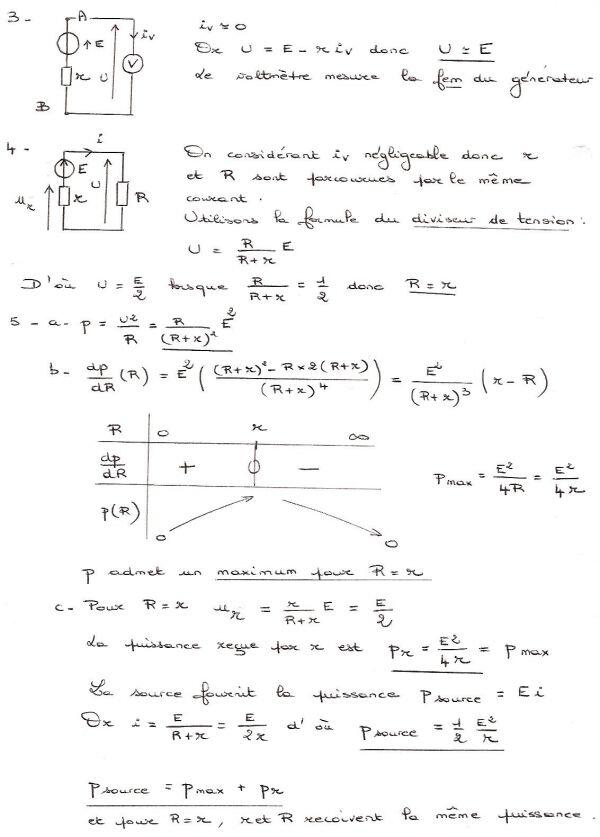 3 - A
i_v ≃ 0
E i_v
r U V
B
Or U = E - r i_v donc U ≃ E
Le voltmètre mesure la fem du générateur
4 - i
E
u_r r U R
On considérant i_v négligeable donc r
et R sont parcourues par le même
courant.
Utilisons la formule du diviseur de tension :
U = R/(R+r) E
D'où U = E/2 lorsque R/(R+r) = 1/2 donc R = r
5 - a - p = U²/R = R/(R+r)² E²
b - dp/dR (R) = E² ( ((R+r)² - R×2(R+r))/(R+r)⁴ ) = E²/(R+r)³ (r - R)
R 0 r ∞
dp/dR + 0 -
P_max = E²/4R = E²/4r
p(R) 0 0
p admet un maximum pour R = r
c - Pour R = r u_r = r/(R+r) E = E/2
La puissance reçue par r est P_r = E²/4r = P max
La source fournit la puissance P source = E i
Or i = E/(R+r) = E/2r d'où P source = 1/2 E²/r
P source = P max + P r
et pour R = r, r et R reçoivent la même puissance.